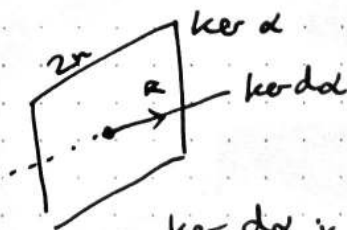 ker α
2n
R
ker dα
ker dα